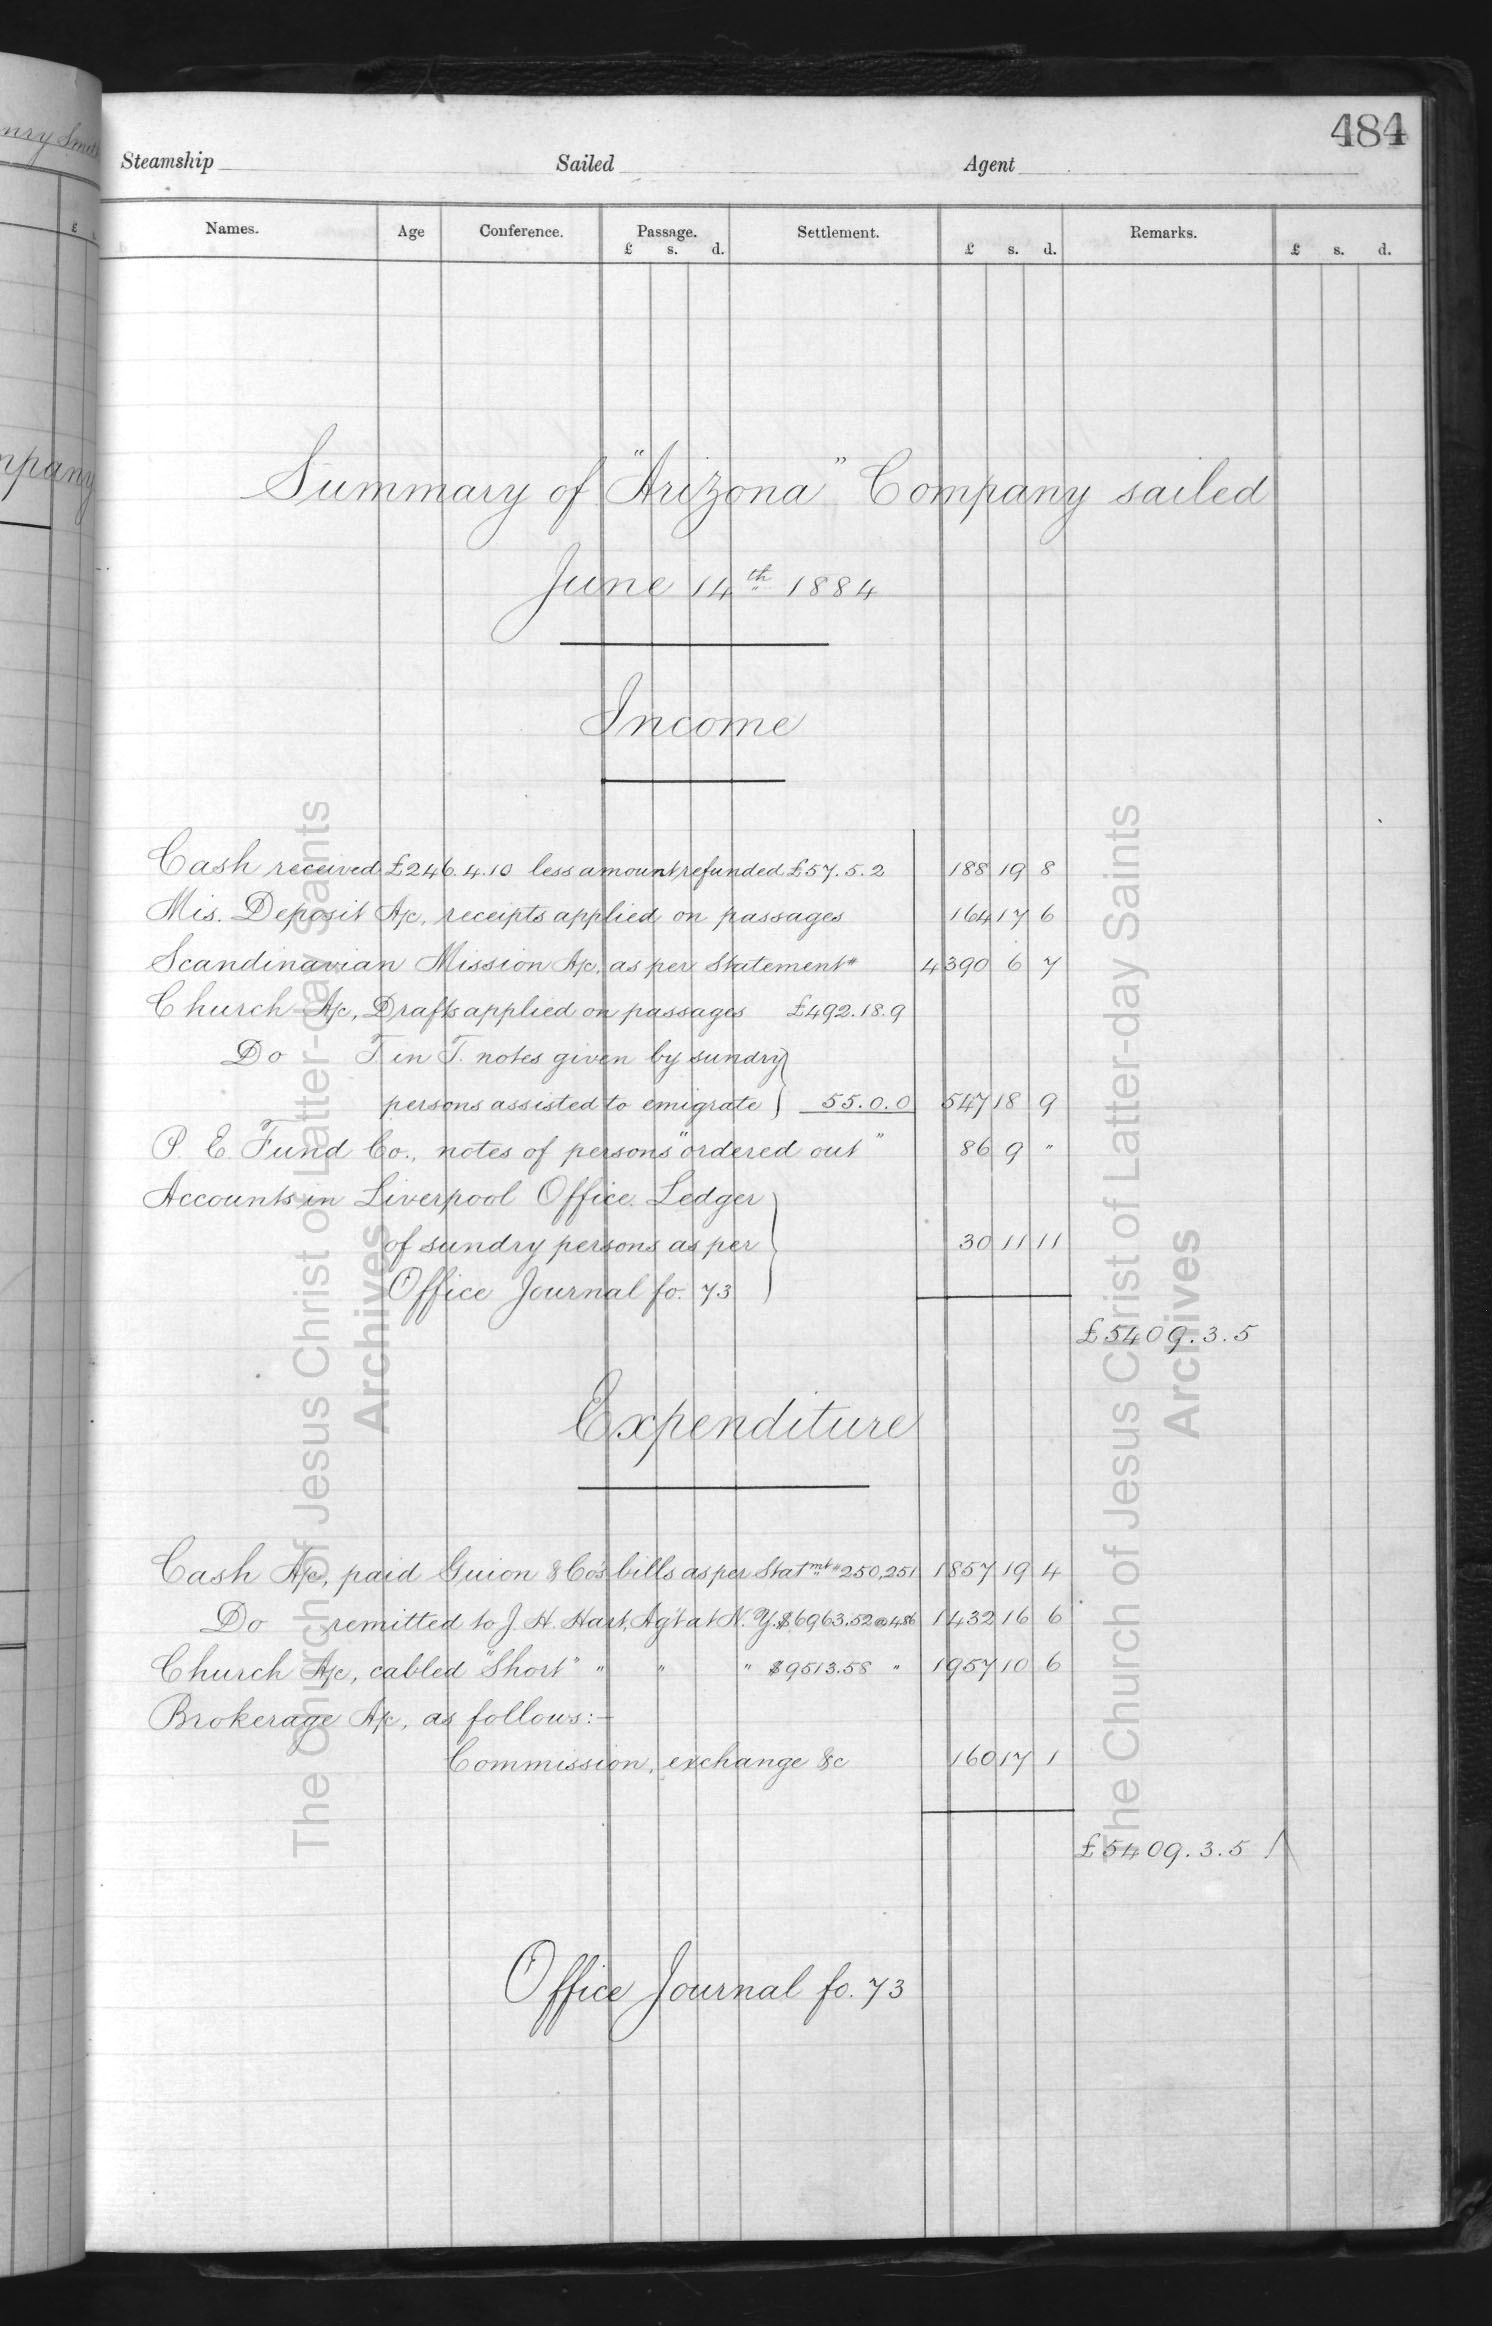 484
Steamship Sailed Agent
Names. Age Conference. Passage. £ s. d. Settlement. £ s. d. Remarks. £ s. d.
Summary of "Arizona" Company sailed
June 14th 1884
Income
Cash received £246.4.10 less amount refunded £57.5.2 188 19 8
Mis. Deposit A/c, receipts applied on passages 164 17 6
Scandinavian Mission A/c, as per Statement # 4390 6 7
Church A/c, Drafts applied on passages £492.18.9
Do T in T. notes given by sundry
persons assisted to emigrate 55.0.0 547 18 9
P. E. Fund Co., notes of persons "ordered out" 86 9 "
Accounts in Liverpool Office Ledger
of sundry persons as per 30 11 11
Office Journal fo. 73
£5409.3.5
Expenditure
Cash A/c, paid Guion & Co's bills as per Statmt # 250,251 1857 19 4
Do remitted to J. H. Hart, Ag't at N. Y. $6963.52 @ 4.86 1432 16 6
Church A/c, cabled "Short" " " " $9513.58 " 1957 10 6
Brokerage A/c, as follows:-
Commission, exchange &c 160 17 1
£5409.3.5
Office Journal fo. 73
The Church of Jesus Christ of Latter-day Saints
Archives
The Church of Jesus Christ of Latter-day Saints
Archives
nry Smith
£
mpany